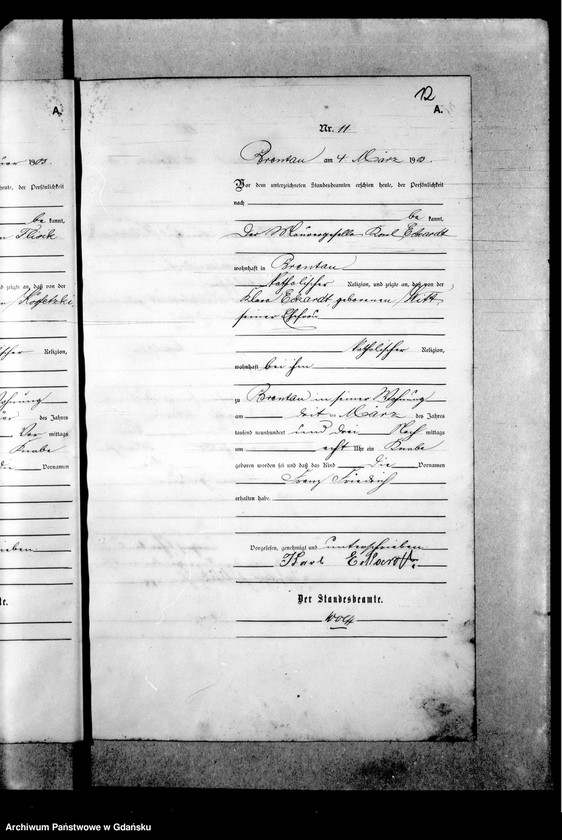 A.
1903.
heute, der Persönlichkeit
be kannt,
Flisek
und zeigte an, daß von der
Religion,
des Jahres
mittags
Knabe
die Vornamen
12
A.
Nr. 11
Brentau am 4 März 1903.
Vor dem unterzeichneten Standesbeamten erschien heute, der Persönlichkeit
nach
be kannt,
Der Maurergeselle Karl Eckardt
wohnhaft in Brentau
katholischer Religion, und zeigte an, daß von der
Klara Eckardt geborenen Witt
seiner Ehefrau
katholischer Religion,
wohnhaft bei ihm
zu Brentau in seiner Wohnung
am drei März des Jahres
tausend neunhundert und drei Nach mittags
um acht Uhr ein Knabe
geboren worden sei und daß das Kind die Vornamen
Franz Friedrich
erhalten habe.
Vorgelesen, genehmigt und unterschrieben
Karl Eckardt.
Der Standesbeamte.
Archiwum Państwowe w Gdańsku